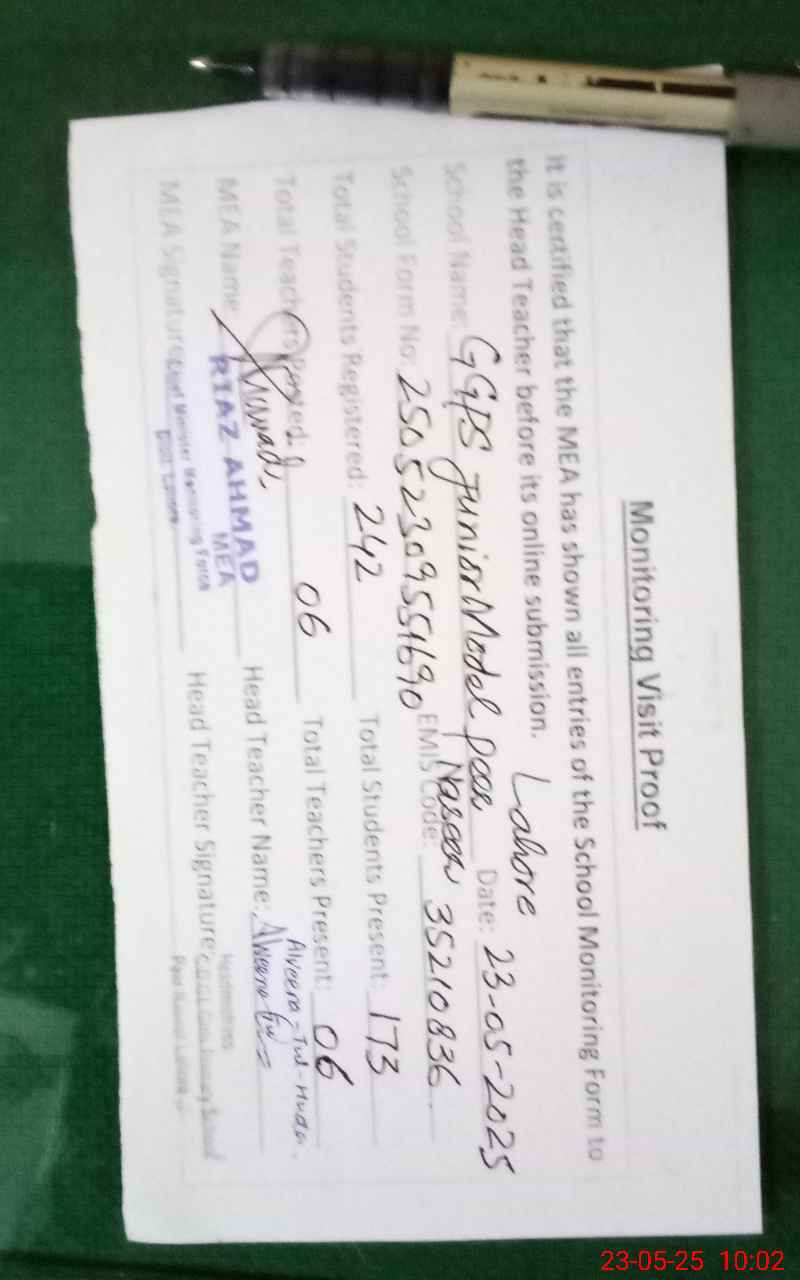 Monitoring Visit Proof
It is certified that the MEA has shown all entries of the School Monitoring Form to
the Head Teacher before its online submission. Lahore
School Name: GGPS Junior Model peer Naseer Date: 23-05-2025
School Form No: 25052309551690 EMIS Code: 35210836
Total Students Registered: 242 Total Students Present: 173
Total Teachers Posted: 06 Total Teachers Present: 06
MEA Name: RIAZ AHMAD Head Teacher Name: Alveera-Tul-Huda.
MEA
MEA Signature: Chief Minister Monitoring Force Head Teacher Signature:
Headmistress
Primary School
23-05-25 10:02